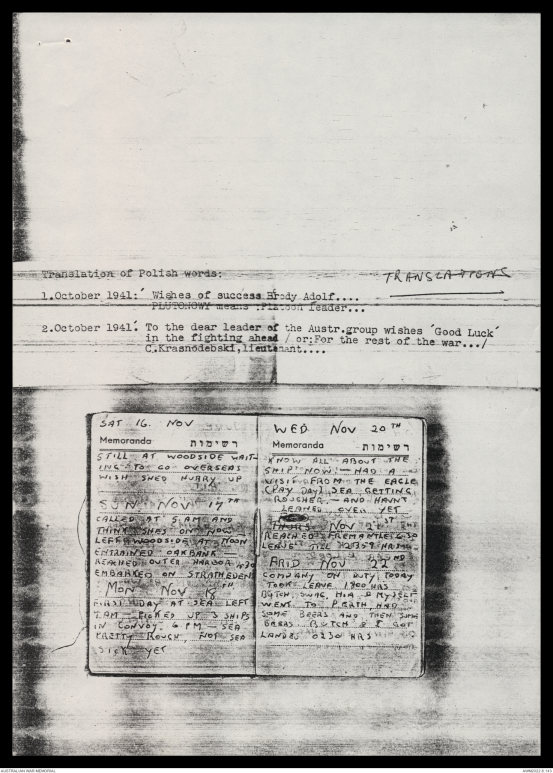 Translation of Polish words:
TRANSLATIONS
1.October 1941: Wishes of success Brody Adolf....
PLUTONOWY means :Platoon leader...
2.October 1941: To the dear leader of the Austr.group wishes 'Good Luck'
in the fighting ahead / or:For the rest of the war.../
C.Krasnodebski,lieutenant....
SAT 16. NOV
Memoranda רשימות
STILL AT WOODSIDE WAIT-
ING TO GO OVERSEAS
WISH SHED HURRY UP
SUN NOV 17TH
CALLED AT 5 AM AND
THINK SHES ON NOW
LEFT WOODSIDE AT NOON
ENTRAINED OAKBANK
REACHED OUTER HARBOR 4.30
EMBARKED ON STRATHEDEN
MON NOV 18TH
FIRST DAY AT SEA LEFT
1 AM PICKED UP 3 SHIPS
IN CONVOY 6 PM - SEA
PRETTY ROUGH, NOT SEA
SICK YET
WED NOV 20TH
Memoranda רשימות
KNOW ALL ABOUT THE
SHIP NOW - HAD A
VISIT FROM THE EAGLE
(PAY DAY) SEA GETTING
ROUGHER - AND HAVNT
LEANED OVER YET
THURS NOV 21ST
REACHED FREMANTLE 6.30
LEAVE TILL 2359 HRS
FRID NOV 22ND
COMPANY ON DUTY TODAY
TOOK LEAVE 1800 HRS
BUTCH, SWAG, & MYSELF
WENT TO PERTH HAD
SOME BEERS AND THEN SOME
BEERS BUTCH & I GOT
LANDED 0230 HRS
AUSTRALIAN WAR MEMORIAL